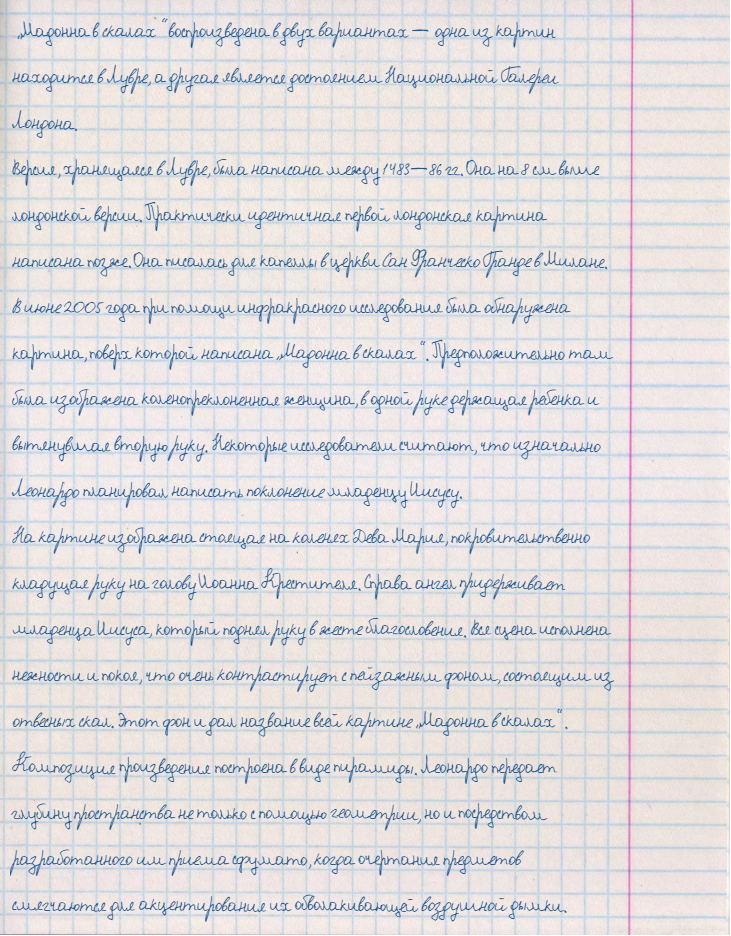 „Мадонна в скалах“ воспроизведена в двух вариантах — одна из картин
находится в Лувре, а другая является достоянием Национальной Галереи
Лондона.
Версия, хранящаяся в Лувре, была написана между 1483—86 гг. Она на 8 см выше
лондонской версии. Практически идентичная первой лондонская картина
написана позже. Она писалась для капеллы в церкви Сан Франческо Гранде в Милане.
В июне 2005 года при помощи инфракрасного исследования была обнаружена
картина, поверх которой написана „Мадонна в скалах“. Предположительно там
была изображена коленопреклоненная женщина, в одной руке держащая ребенка и
вытянувшая вторую руку. Некоторые исследователи считают, что изначально
Леонардо планировал написать поклонение младенцу Иисусу.
На картине изображена стоящая на коленях Дева Мария, покровительственно
кладущая руку на голову Иоанна Крестителя. Справа ангел придерживает
младенца Иисуса, который поднял руку в жесте благословения. Вся сцена исполнена
нежности и покоя, что очень контрастирует с пейзажным фоном, состоящим из
отвесных скал. Этот фон и дал название всей картине „Мадонна в скалах“.
Композиция произведения построена в виде пирамиды. Леонардо передает
глубину пространства не только с помощью геометрии, но и посредством
разработанного им приема сфумато, когда очертания предметов
смягчаются для акцентирования их обволакивающей воздушной дымки.